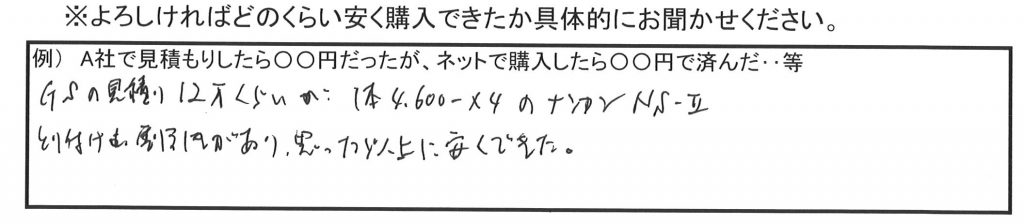 ※よろしければどのくらい安く購入できたか具体的にお聞かせください。
例） A社で見積もりしたら〇〇円だったが、ネットで購入したら〇〇円で済んだ‥等
GSの見積り 12万くらいが: 1本 4.600-×4 の ナンカン NS-Ⅱ
取付けも 割引があり、思った以上に安くできた。